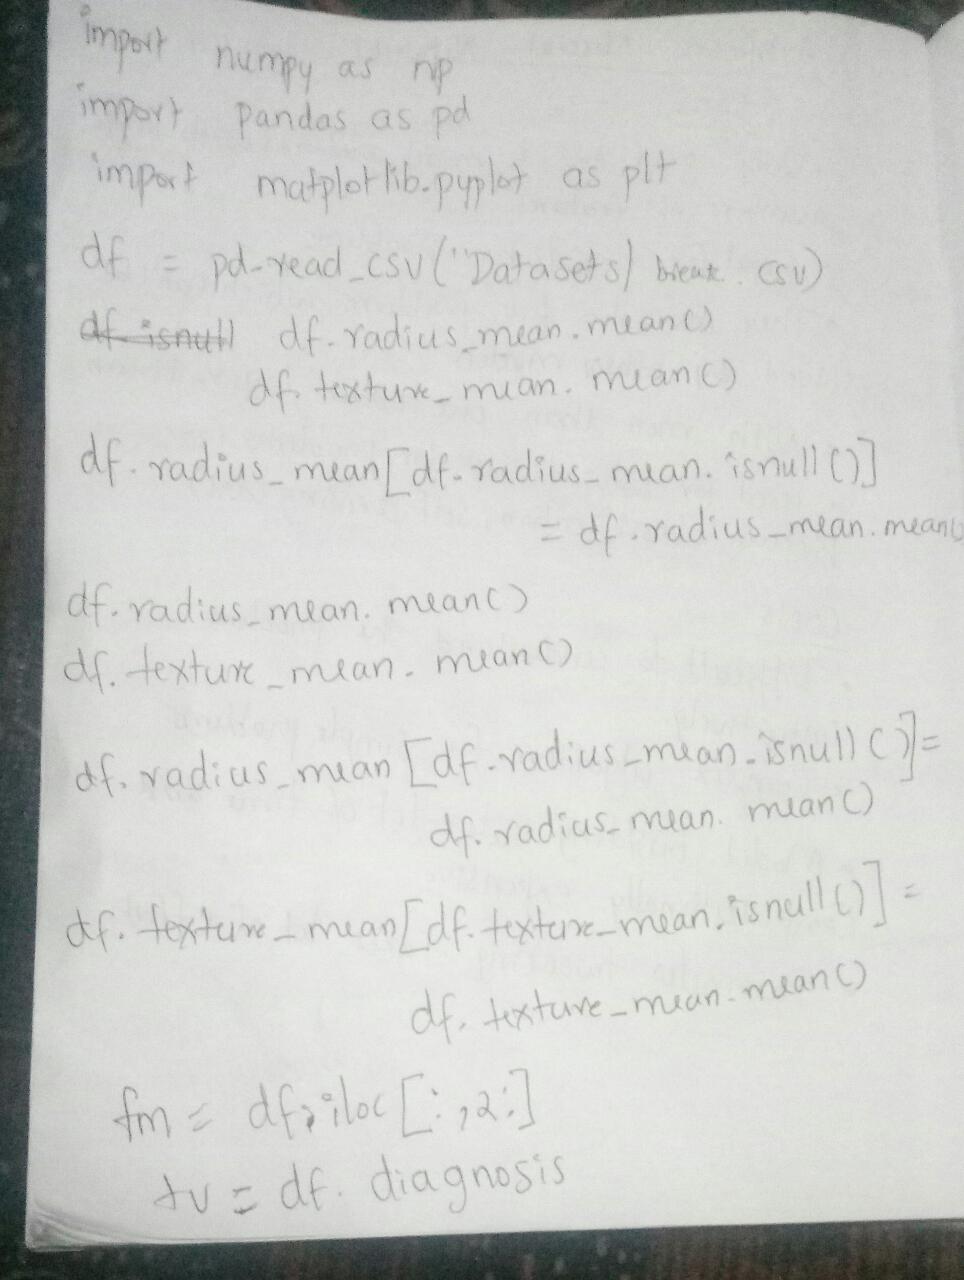 import numpy as np
import pandas as pd
import matplotlib.pyplot as plt
df = pd.read_csv("Datasets/ break.csv)
df isnull df.radius_mean.mean()
df.texture_mean.mean()
df.radius_mean[df.radius_mean.isnull()]
= df.radius_mean.mean()
df.radius_mean.mean()
df.texture_mean.mean()
df.radius_mean[df.radius_mean.isnull()]=
df.radius_mean.mean()
df.texture_mean[df.texture_mean.isnull()] =
df.texture_mean.mean()
fm = df.iloc[:,2:]
tv = df.diagnosis